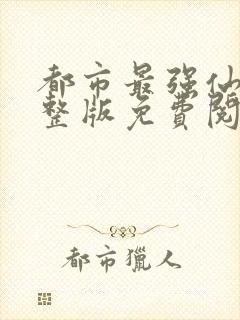 都市最强仙
整版免費閱
都市獵人